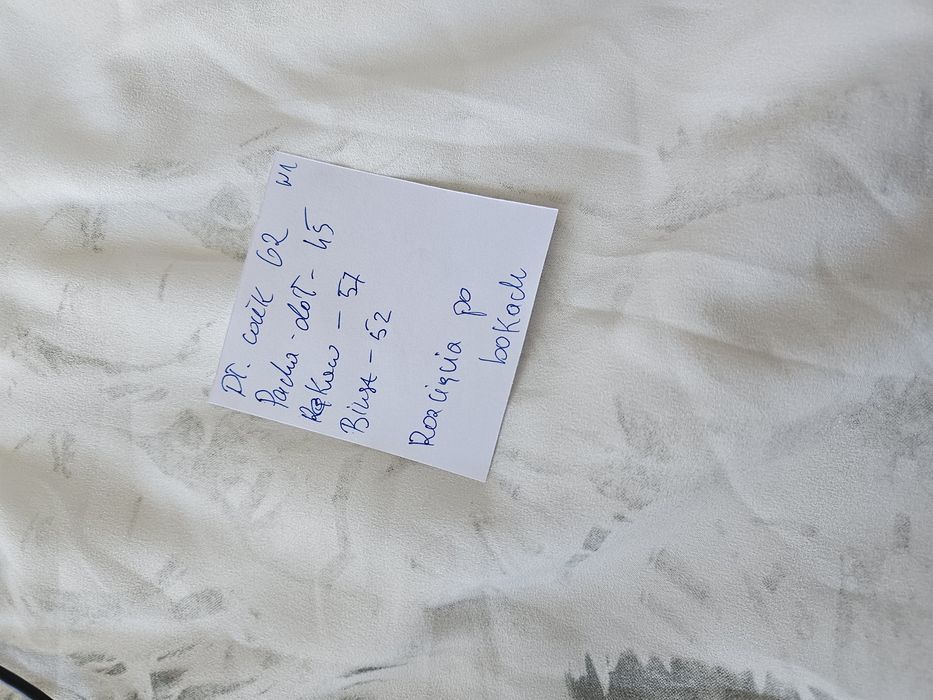 Dł. całk 62 W1
Pacha - dół - 45
Rękaw - 57
Biust - 52
Rozcięcia po
bokach